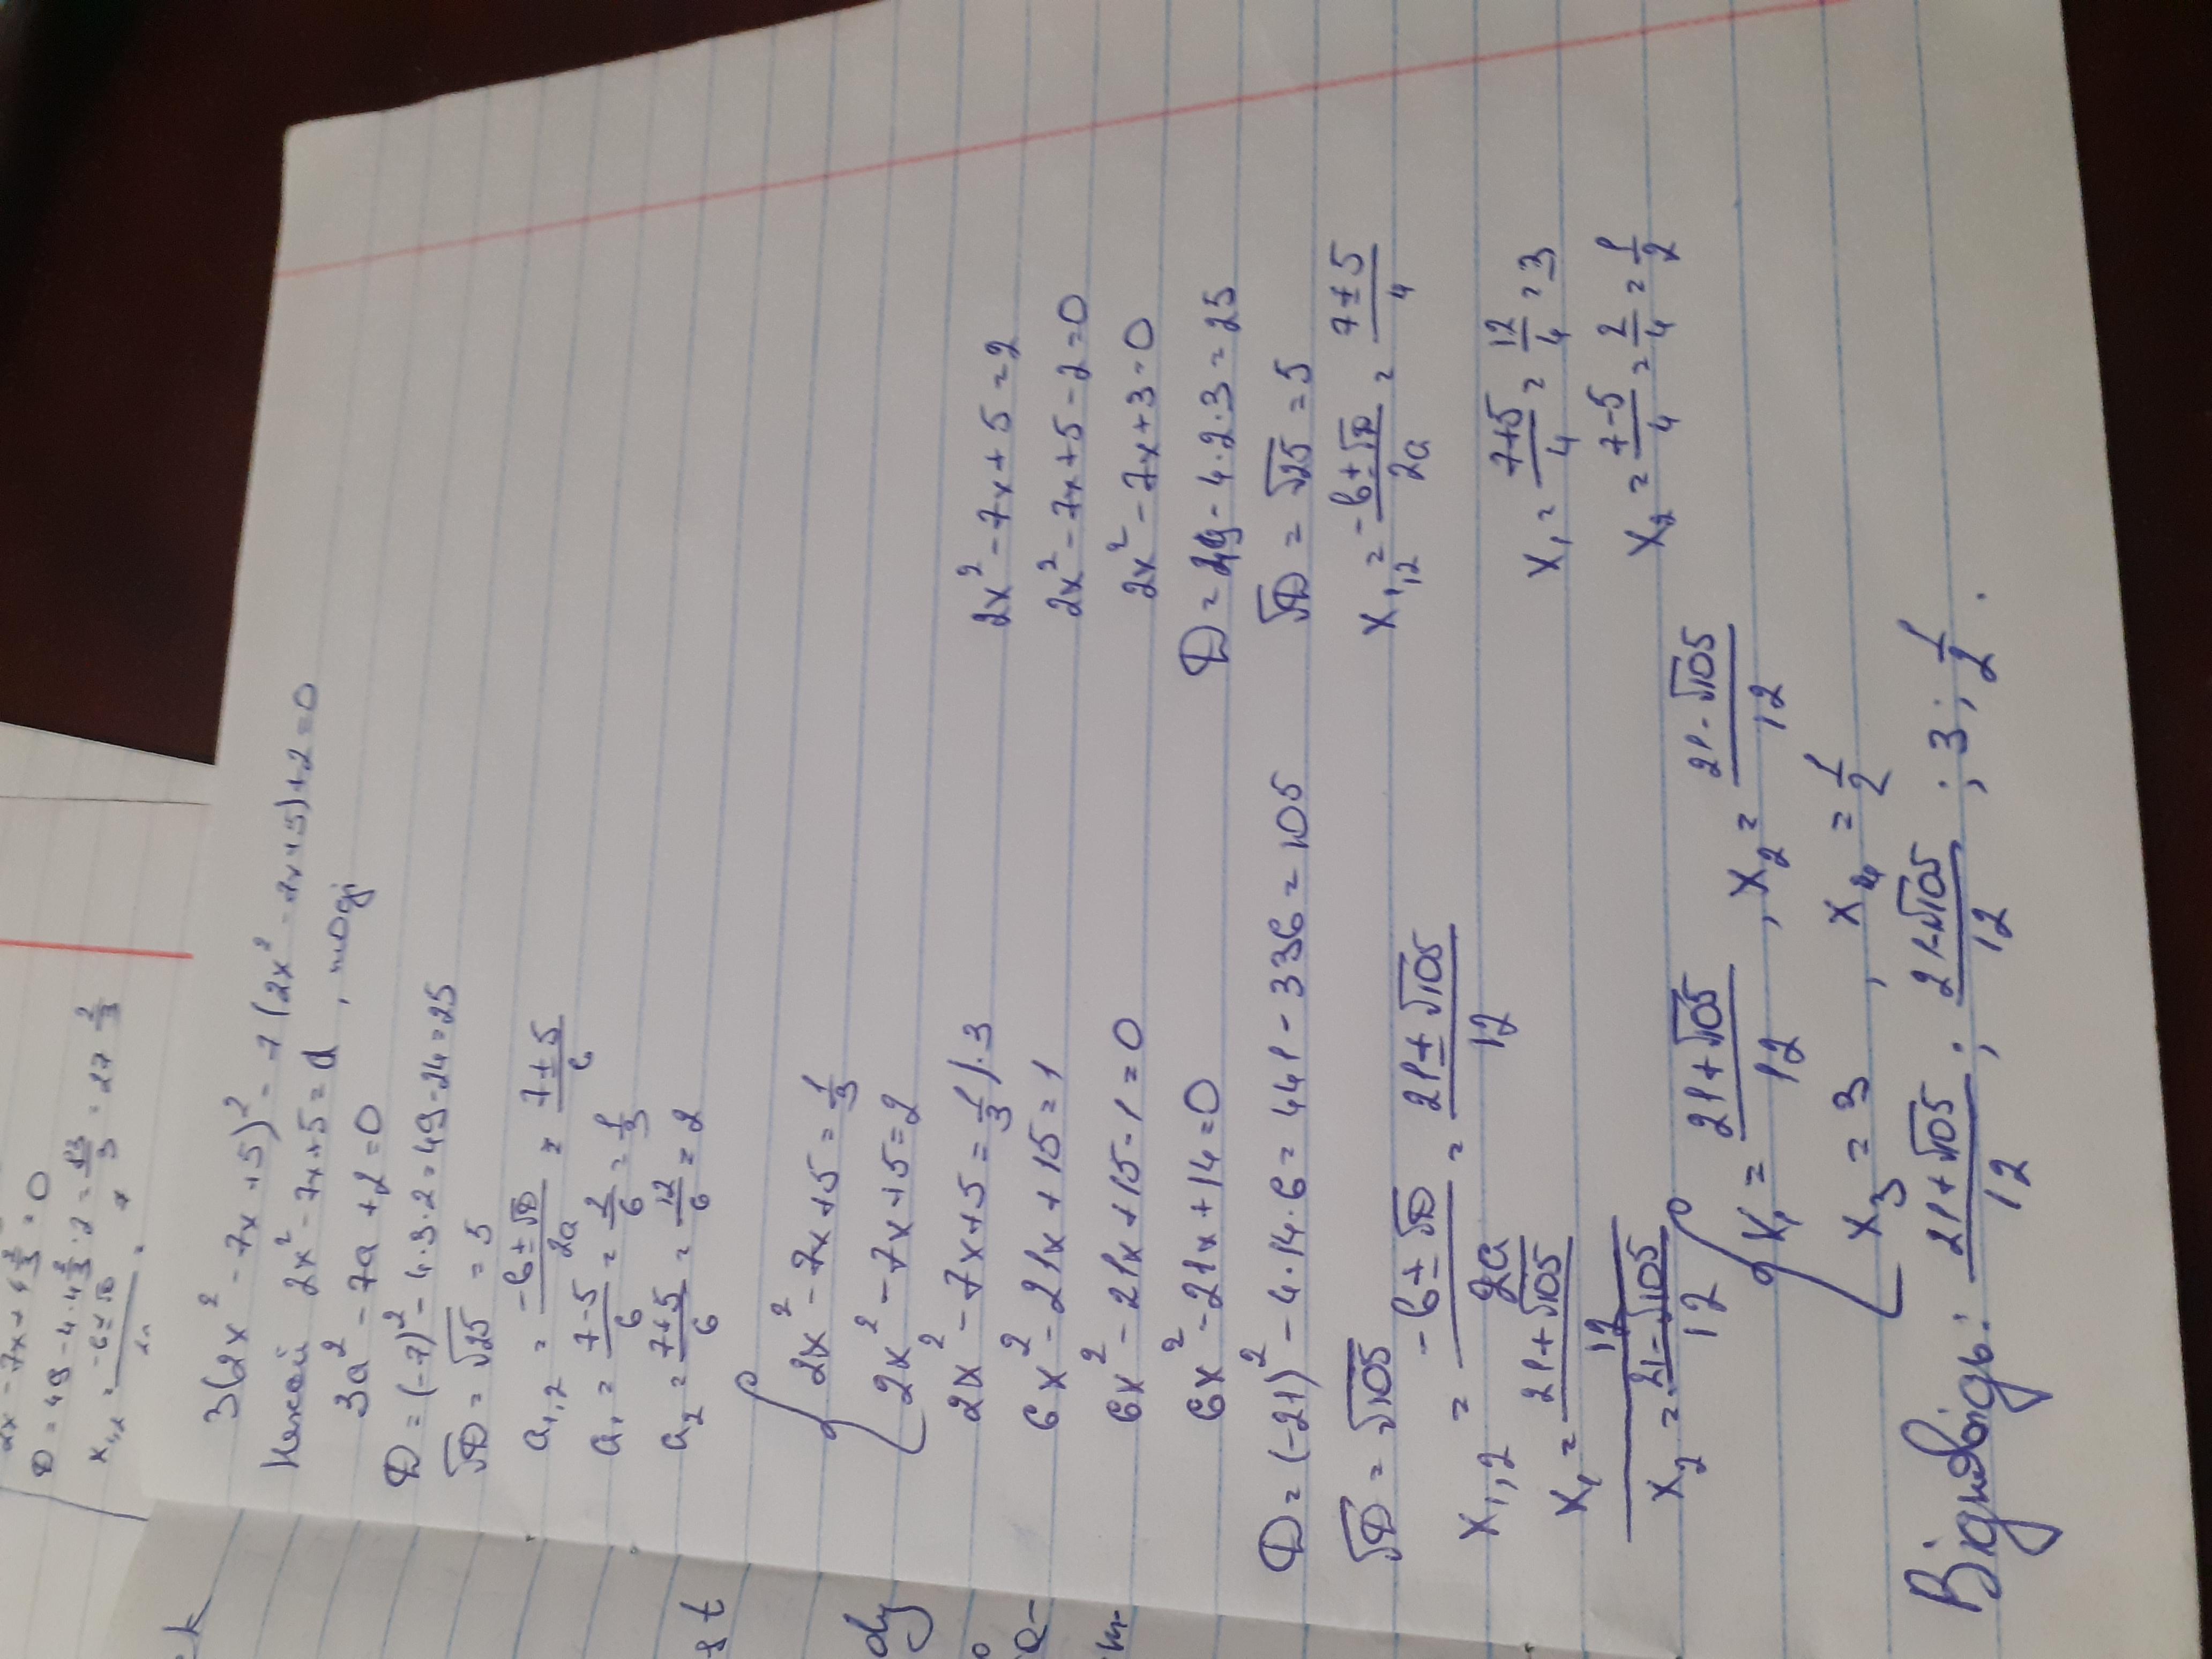 2x² - 7x + 4 2/3 = 0
D = 49 - 4 · 4 2/3 · 2 =
3(2x² - 7x + 5)² - 7(2x² - 7x + 5) + 2 = 0
Нехай 2x² - 7x + 5 = a, тоді
3a² - 7a + 2 = 0
D = (-7)² - 4·3·2 = 49 - 24 = 25
√D = √25 = 5
a₁,₂ = (-b ± √D)/2a = (7 ± 5)/6
a₁ = (7-5)/6 = 2/6 = 1/3
a₂ = (7+5)/6 = 12/6 = 2
2x² - 7x + 5 = 1/3
2x² - 7x + 5 = 2
2x² - 7x + 5 = 1/3 /·3
6x² - 21x + 15 = 1
6x² - 21x + 15 - 1 = 0
6x² - 21x + 14 = 0
D = (-21)² - 4·14·6 = 441 - 336 = 105
√D = √105
x₁,₂ = (-b ± √D)/2a = (21 ± √105)/12
x₁ = (21 + √105)/12
x₂ = (21 - √105)/12
2x² - 7x + 5 = 2
2x² - 7x + 5 - 2 = 0
2x² - 7x + 3 = 0
D = 49 - 4·2·3 = 25
√D = √25 = 5
x₁,₂ = (-b ± √D)/2a = (7 ± 5)/4
x₁ = (7+5)/4 = 12/4 = 3
x₂ = (7-5)/4 = 2/4 = 1/2
x₁ = (21 + √105)/12, x₂ = (21 - √105)/12
x₃ = 3, x₄ = 1/2
Відповідь: (21 + √105)/12; (21 - √105)/12; 3; 1/2.